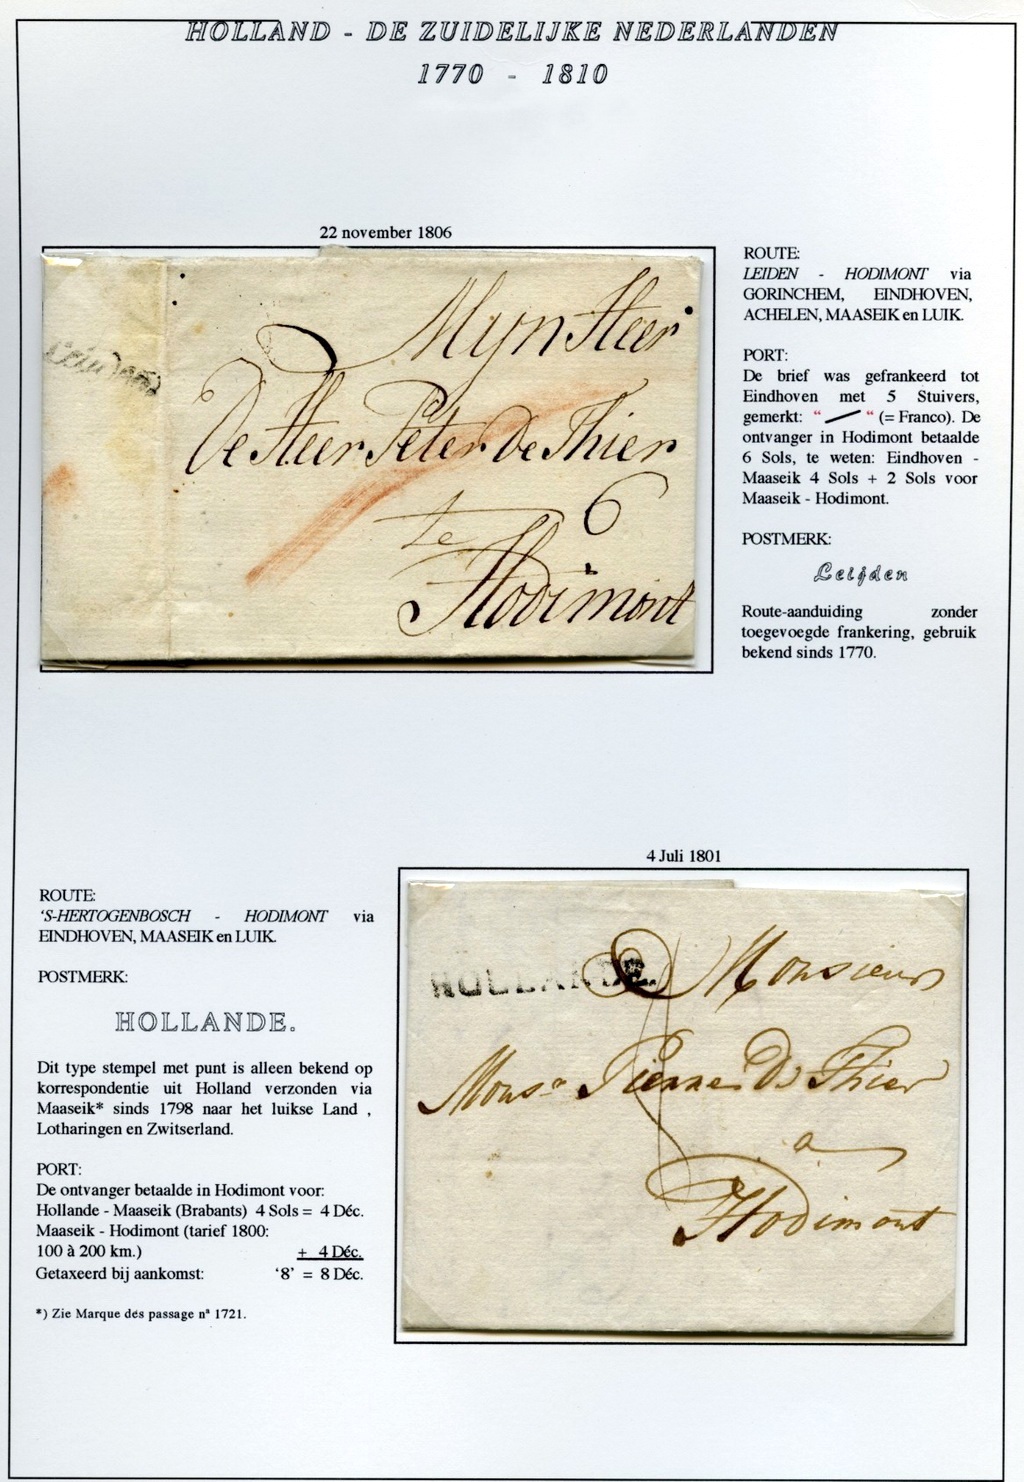 HOLLAND - DE ZUIDELIJKE NEDERLANDEN
1770 - 1810
22 november 1806
Leijden
Mijn Heer
De Heer Peter De Thier
6
te
Hodimont
ROUTE:
LEIDEN - HODIMONT via
GORINCHEM, EINDHOVEN,
ACHELEN, MAASEIK en LUIK.
PORT:
De brief was gefrankeerd tot
Eindhoven met 5 Stuivers,
gemerkt: “ “ (= Franco). De
ontvanger in Hodimont betaalde
6 Sols, te weten: Eindhoven -
Maaseik 4 Sols + 2 Sols voor
Maaseik - Hodimont.
POSTMERK:
Leijden
Route-aanduiding zonder
toegevoegde frankering, gebruik
bekend sinds 1770.
ROUTE:
‘S-HERTOGENBOSCH - HODIMONT via
EINDHOVEN, MAASEIK en LUIK.
POSTMERK:
HOLLANDE.
Dit type stempel met punt is alleen bekend op
korrespondentie uit Holland verzonden via
Maaseik* sinds 1798 naar het luikse Land ,
Lotharingen en Zwitserland.
PORT:
De ontvanger betaalde in Hodimont voor:
Hollande - Maaseik (Brabants) 4 Sols = 4 Déc.
Maaseik - Hodimont (tarief 1800:
100 à 200 km.) + 4 Déc.
Getaxeerd bij aankomst: ‘8’ = 8 Déc.
*) Zie Marque des passage nª 1721.
4 Juli 1801
HOLLANDE.
8
Monsieur
Monsr Pierre De Thier
a
Hodimont